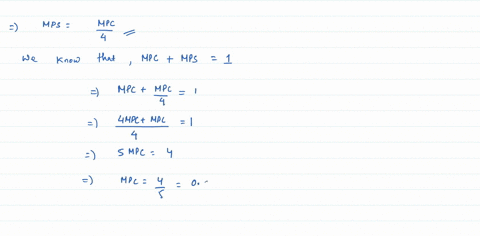 =) MPS = MPC/4
We know that, MPC + MPS = 1
=) MPC + MPC/4 = 1
=) 4MPC + MPC/4 = 1
=) 5 MPC = 4
=) MPC = 4/5 = 0.